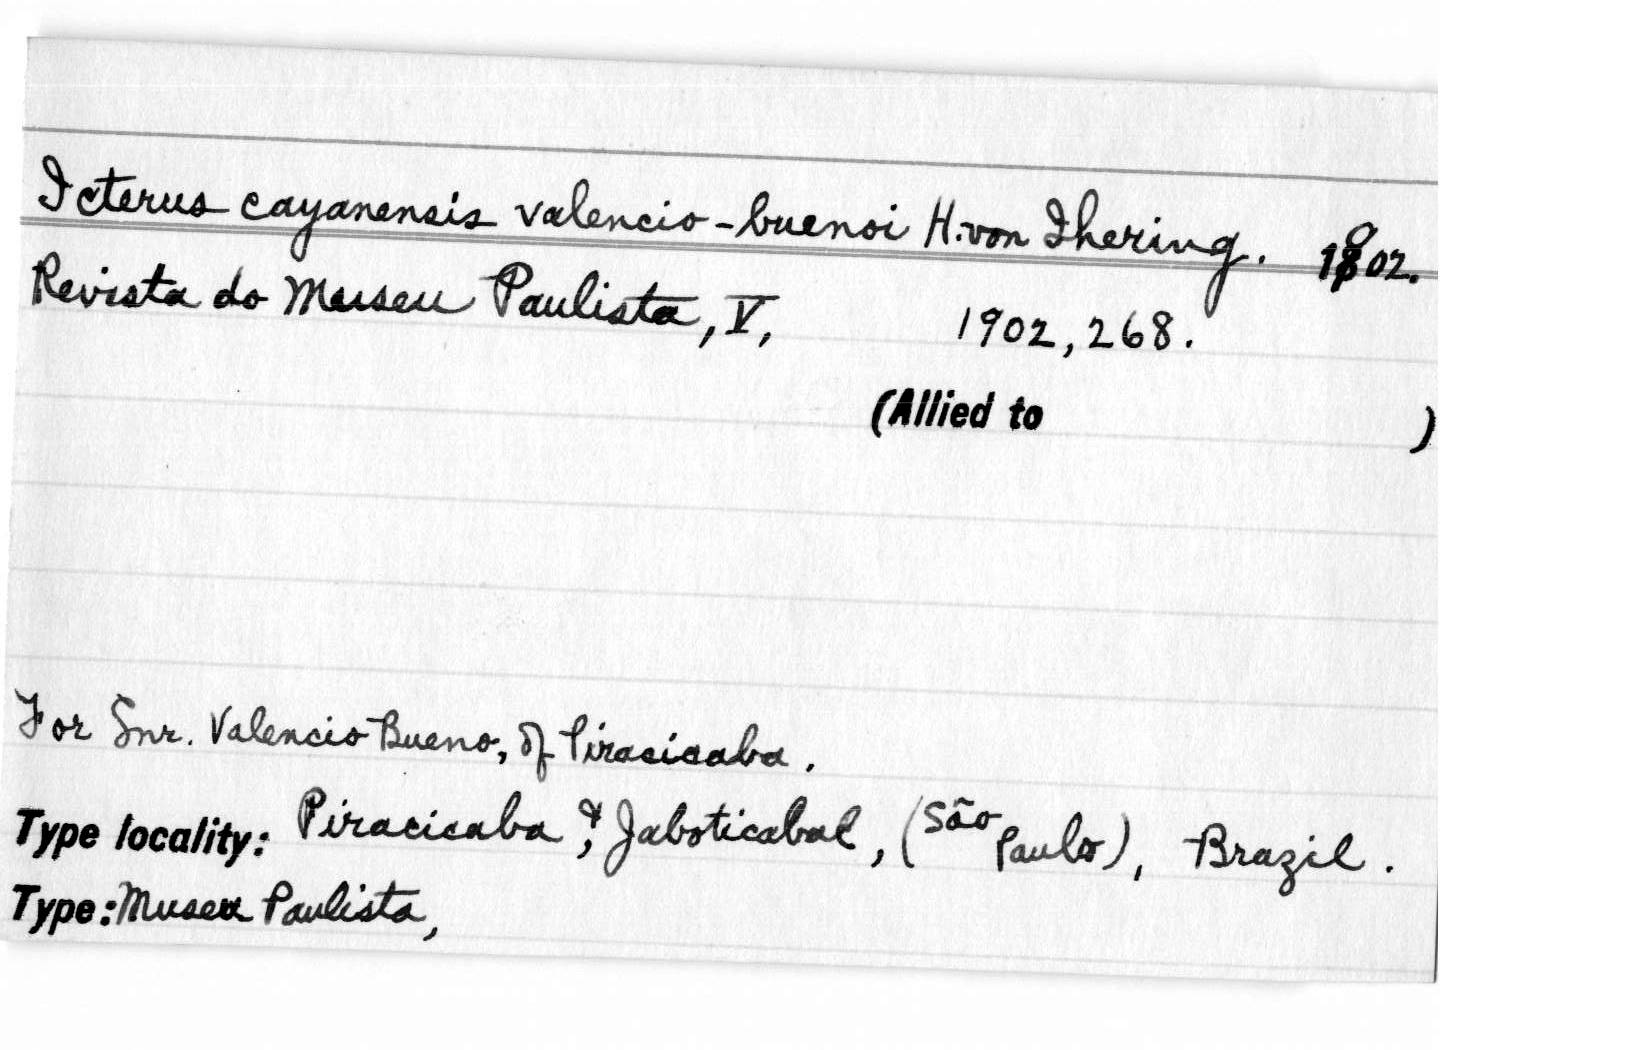 Icterus cayanensis valencio-buenoi H. von Ihering. 1902.
Revista do Museu Paulista, V, 1902, 268.
(Allied to )
For Snr. Valencio Bueno, of Piracicaba.
Type locality: Piracicaba & Jaboticabal, (São Paulo), Brazil.
Type: Museu Paulista,